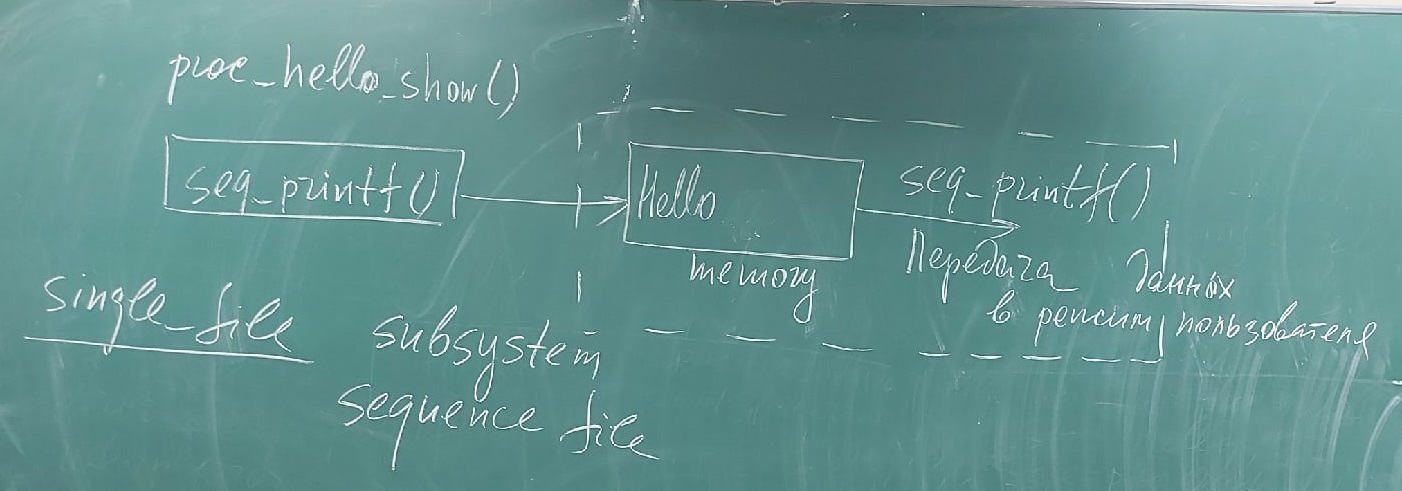 proc_hello_show()
seq_printf()
Hello
memory
seq_printf()
Передача данных
в режим пользователя
single_file
subsystem
sequence file